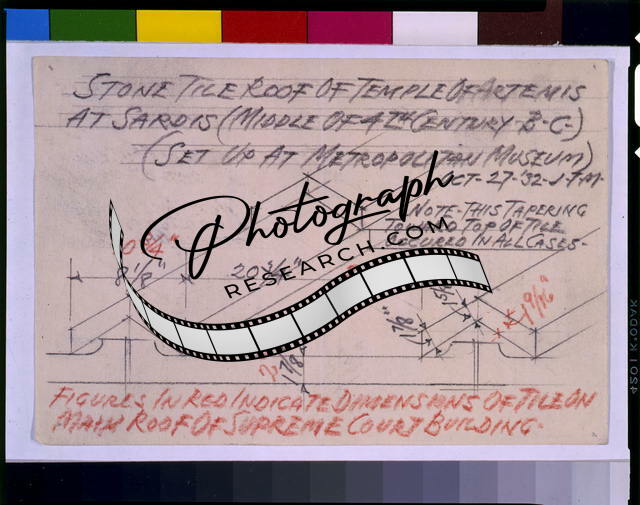 STONE TILE ROOF OF TEMPLE OF ARTEMIS
AT SARDIS (MIDDLE OF 4TH CENTURY B-C-)
(SET UP AT METROPOLITAN MUSEUM)
OCT-27-'32-J-F-M-
NOTE-THIS TAPERING
TOWARD TOP OF TILE
OCCURED IN ALL CASES-
Photograph
RESEARCH.COM
8 1/8"
20 3/4"
1 7/8"
1 9/16"
FIGURES IN RED INDICATE DIMENSIONS OF TILE ON
MAIN ROOF OF SUPREME COURT BUILDING-